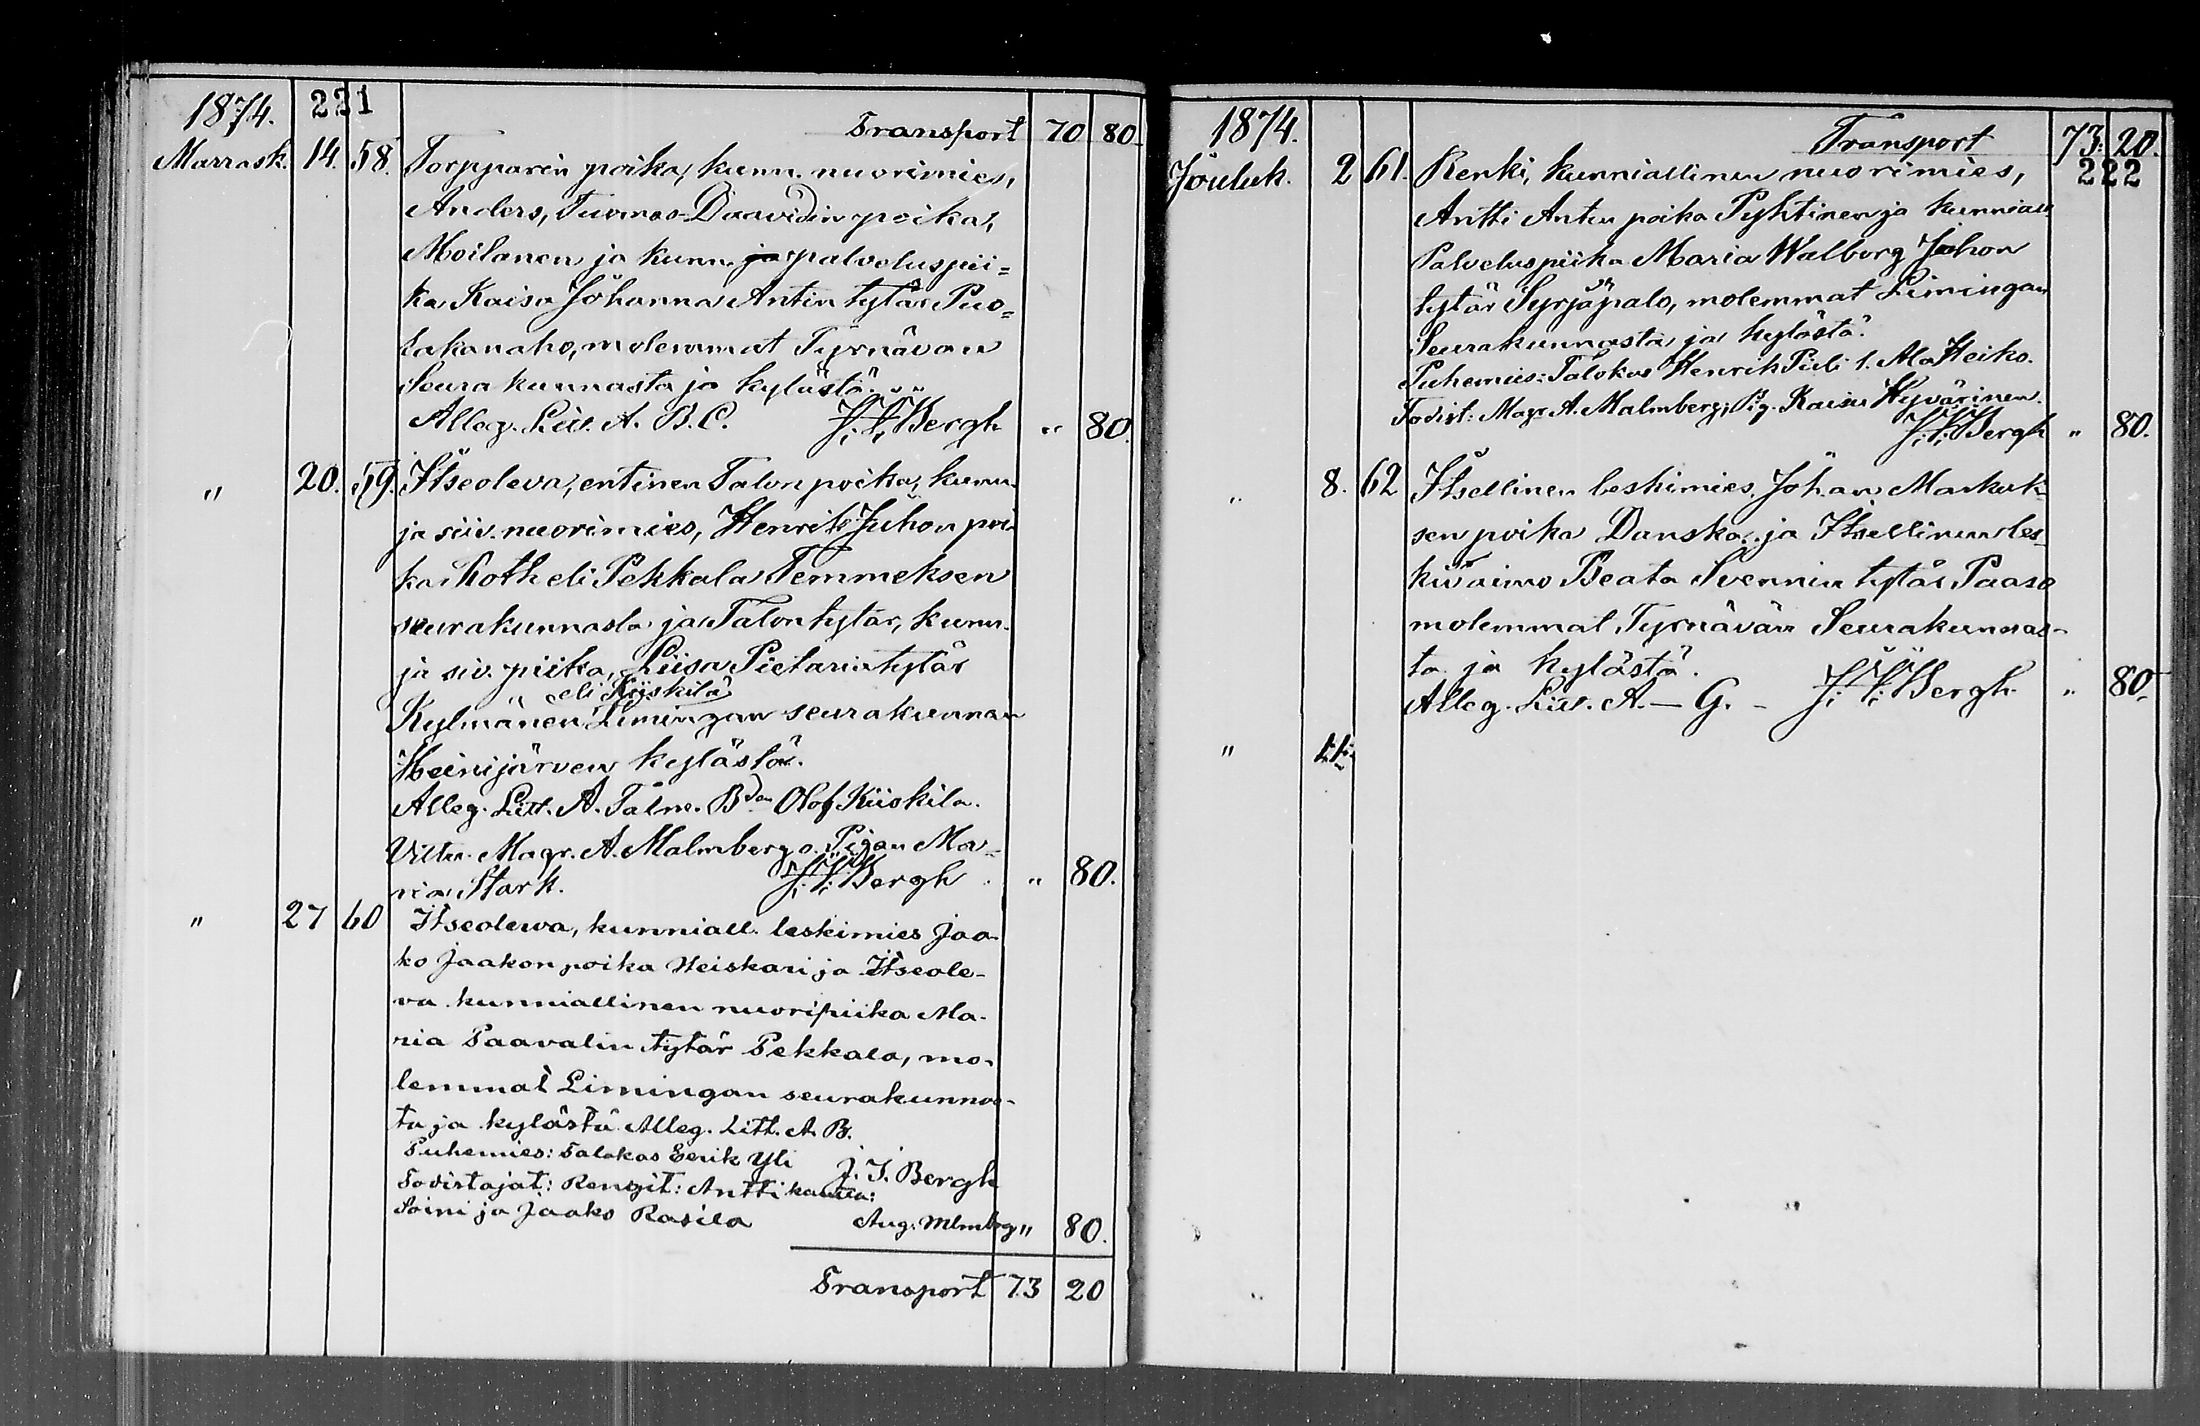 1874. 221
Transport 70 80.
Marrask. 14. 58. Torpparin poika, kunn. nuorimies,
Anders, Tuomas Daavidin poika,
Moilanen ja kunn. ja palveluspii=
ka Kaisa Johanna Antin tytär Puo=
lakanaho, molemmat Tyrnävän
Seurakunnasta ja kylästä.
Alleg. Litt. A. B. C. J. I. Bergh " 80.
" 20. 59. Itseoleva, entinen Talon poika, kunn.
ja siiv. nuorimies, Henrik Juhon poi
ka Koth eli Pekkala Temmeksen
seurakunnasta ja Talon tytär, kunn.
ja siv. piika, Liisa Pietarin tytär
eli Kiiskilä
Kylmänen Limingan seurakunnan
Heinijärven kylästä.
Alleg. Litt. A. Talm. Bden Olof Kiiskila.
Vittn. Magr. A. Malmberg o. Pigan Ma=
ria Stark. J. I. Bergh " 80.
" 27 60 Itseolewa, kunniall. leskimies Jaa-
ko Jaakon poika Heiskari ja Itseole-
va kunniallinen nuoripiika Ma-
ria Paavalin tytär Pekkala, mo-
lemmat Limingan seurakunnas-
ta ja kylästä Alleg. Litt. A B.
Puhemies: Talokas Eerik Yli
J. I. Bergh
Todistajat: Rengit: Antti
Soini ja Jaako Rasila Aug. Mlmbrg " 80.
Transport 73 20
1874. Transport 73: 20.
222
Jouluk. 2 61. Renki, kunniallinen nuorimies,
Antti Antin poika Pyhtinen ja kunniall.
Palveluspiika Maria Walborg Johon
tytär Syrjäpalo, molemmat Limingan
Seurakunnasta ja kylästä.
Puhemies: Talokas Henrik Pieli l. Ala Heiko.
Todist: Magr A. Malmberg, Pig. Kaisa Hyvärinen.
J. I. Bergh " 80.
" 8. 62 Itsellinen leskimies, Johan Markuk-
sen poika Danska ja Itsellinen les-
kivaimo Beata Svennin tytär Paaso
molemmat Tyrnävän Seurakunnas-
ta ja kylästä.
Alleg. Litt. A. – G. – J. I. Bergh " 80.
"